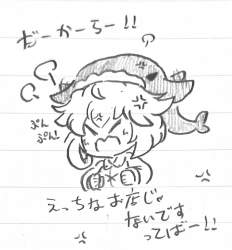 だーかーらー!!
ぷん
ぷん!
えっちなお店じゃ
ないです
ってばー!!